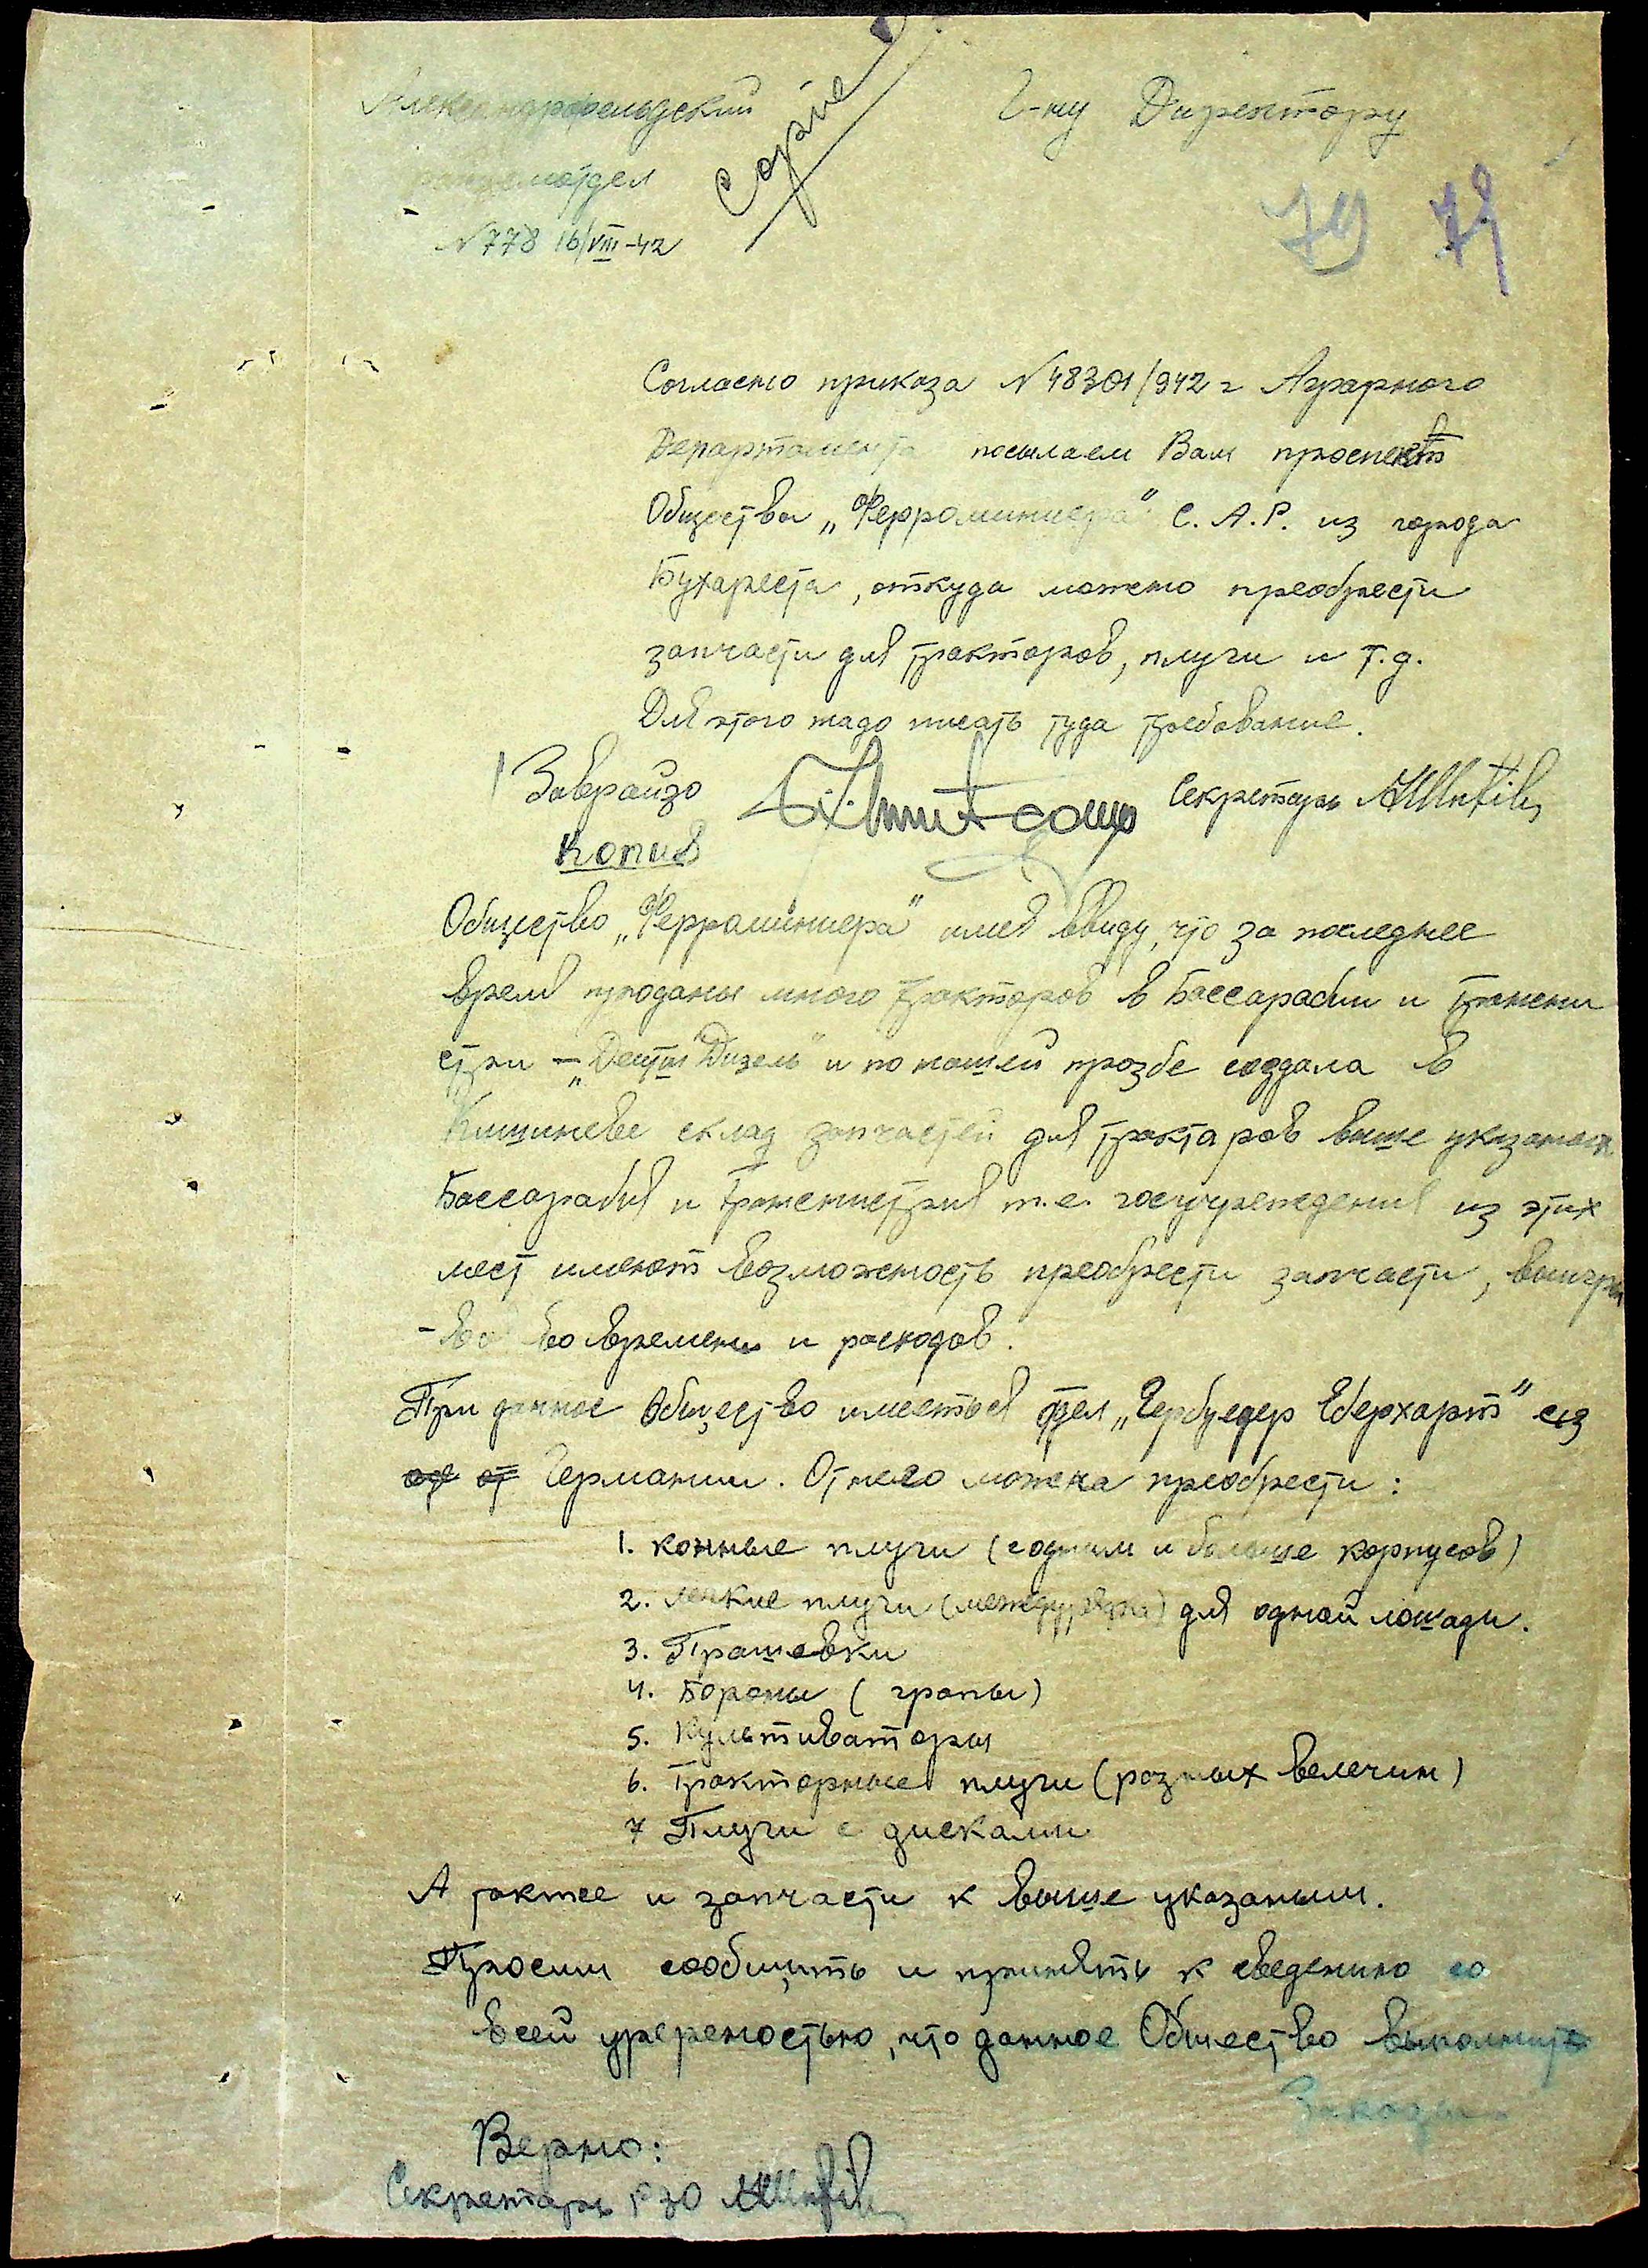 Александрофельдский
Copie
Г-ну Директору
райземотдел
N 778 16/VIII-42
79 79
Согласно приказа N 48301/942 г Аграрного
Департамента посылаем Вам проспект
Общества „Ферроминиера" С.А.Р. из города
Бухареста, откуда можно преобрести
запчасти для тракторов, плуги и т.д.
Для этого надо писать туда требование.
Заврайзо
Секретарь
Копия
Общество „Ферроминиера" имея ввиду, что за последнее
время проданы много тракторов в Бессарабии и Транени
стри – „Деутш Дизель" и по нашей прозбе создала в
Кишиневе склад запчастей для трактаров выше указаных
Бессарабия и Транснистрия т.е. госучреждения из этих
мест имеют возможность преобрести запчасти, выигры
-вая во времени и расходов.
При данное Общество имееться отдел „Гербуедер Еберхарт" из
Германии. От него можна преобрести:
1. конные плуги (с одним и больше корпусов)
2. легкие плуги (междурядка) для одной лошади.
3. Прашевки
4. Бороны (грапы)
5. Культиваторы
6. Тракторные плуги (разных велечин)
7 Плуги с дисками
А также и запчасти к выше указаным.
Просим сообщить и принять к сведению со
всей увереностью, что данное Общество выполнит
Заказы
Верно:
Секретарь РЗО